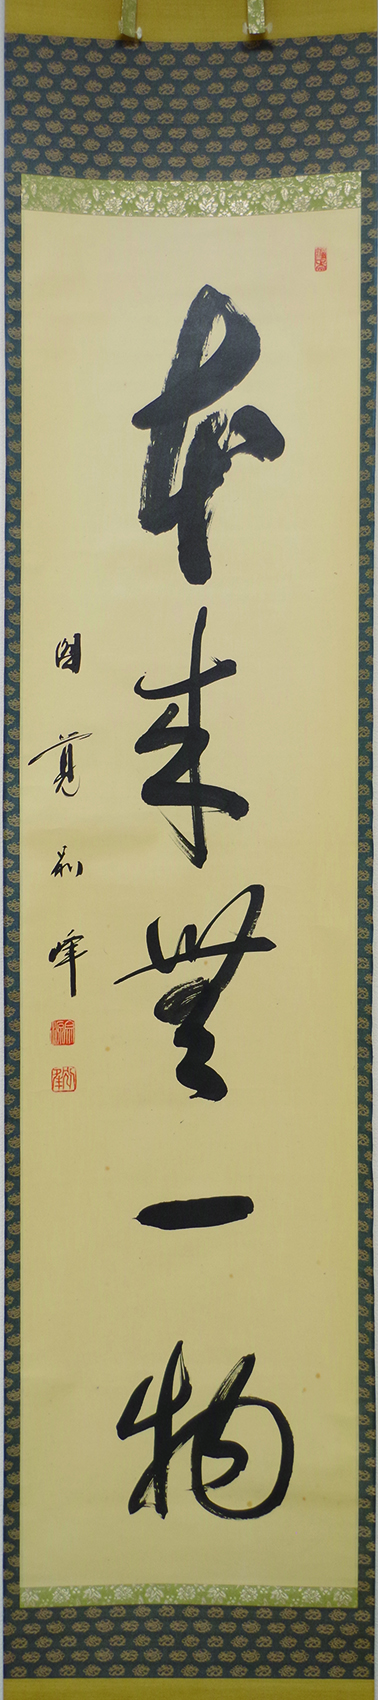 本来無一物
円覚別峰